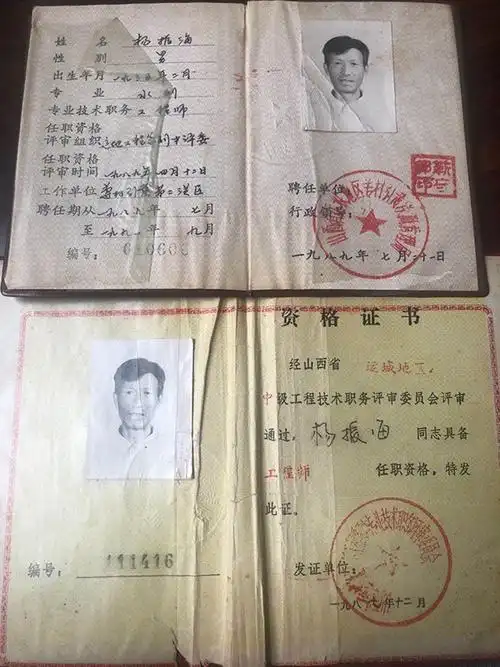 姓 名 杨振海
性 别 男
出生年月 一九三五年二月
专 业 水利
专业技术职务 工程师
任职资格
评审组织
任职资格
评审时间 一九八九年四月十二日
工作单位
聘任期从 一九八九年 七月
至 一九九一年 九月
编号: 010606
聘任单位
行政领导:
一九八九年 七月二十一日
资格证书
经山西省 运城地区
中级工程技术职务评审委员会评审
通过, 杨振海 同志具备
工程师 任职资格,特发
此证。
编号: 111416
发证单位:
一九八七年十二月